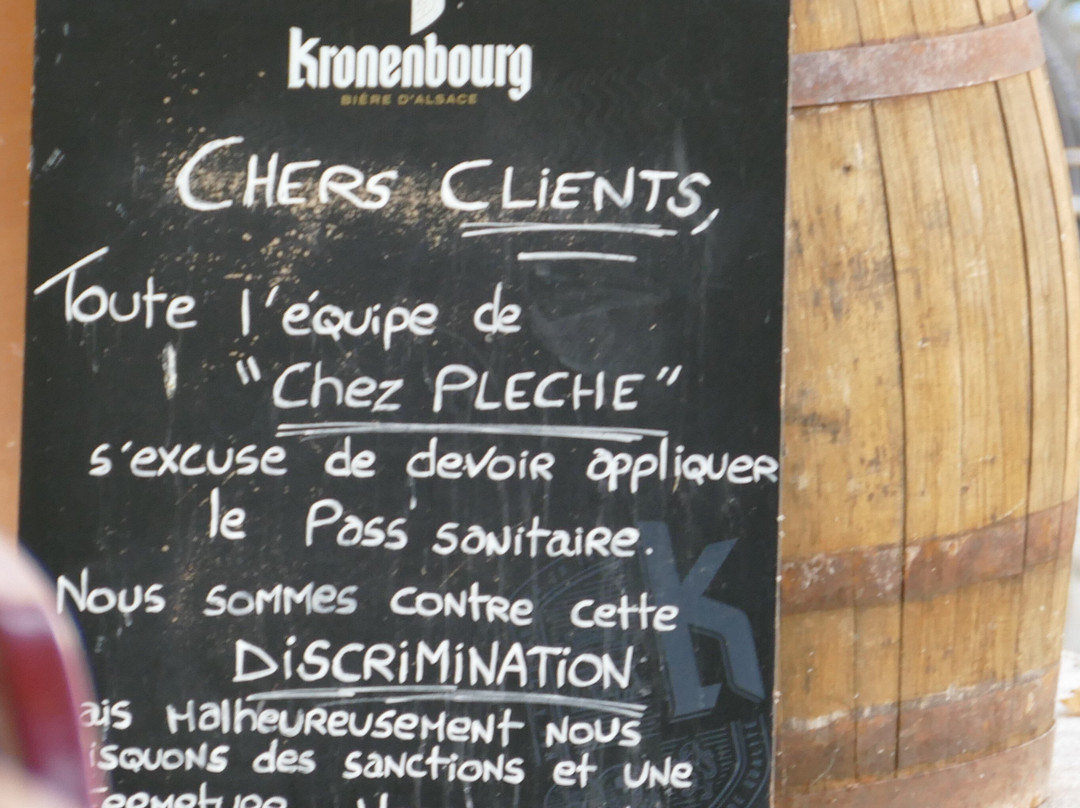 Kronenbourg
BIÈRE D'ALSACE
CHERS CLIENTS,
Toute l'équipe de
"Chez PLECHE"
s'excuse de devoir appliquer
le Pass sanitaire.
Nous sommes contre cette
DiSCRiMiNATiON
ais malheureusement nous
isquons des sanctions et une